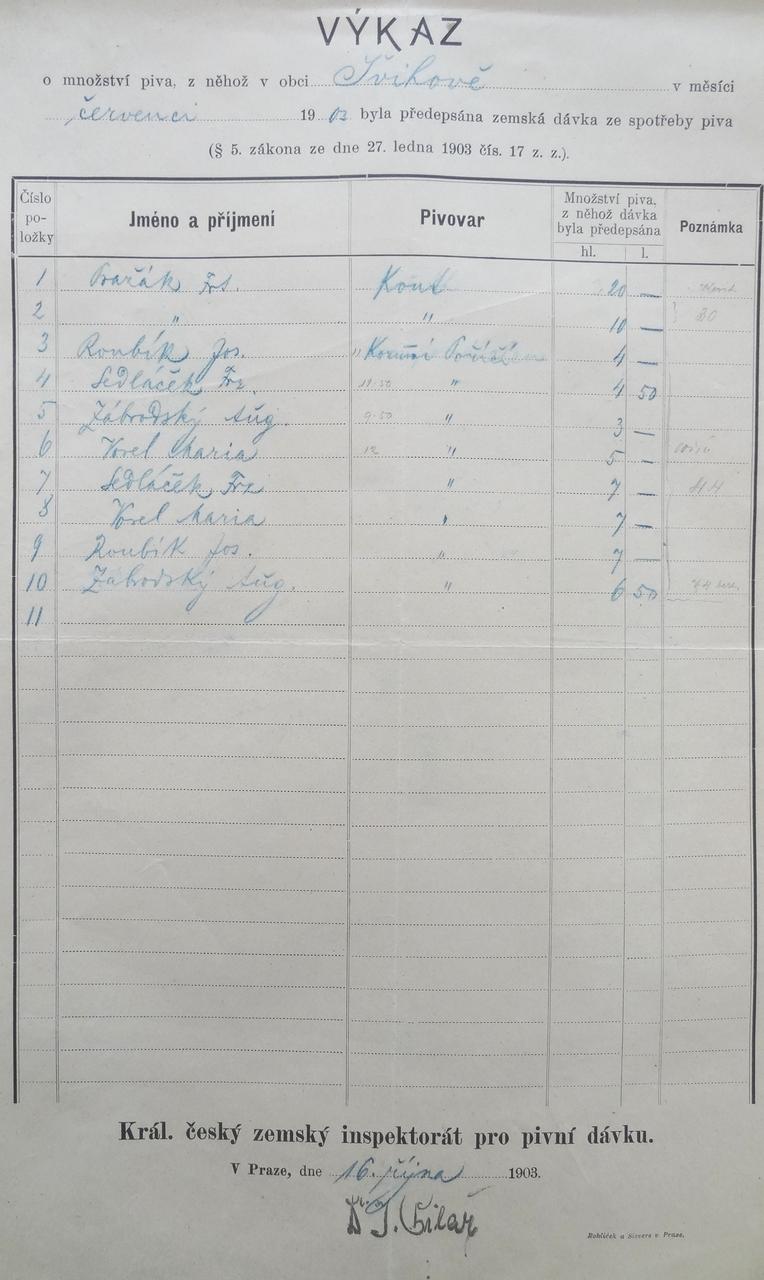 VÝKAZ
o množství piva, z něhož v obci Švihově v měsíci
červenci 1903 byla předepsána zemská dávka ze spotřeby piva
(§ 5. zákona ze dne 27. ledna 1903 čís. 17 z. z.).
Číslo položky Jméno a příjmení Pivovar Množství piva, z něhož dávka byla předepsána Poznámka
hl. l.
1 Frt. Kout 20 —
2 " " 10 — } 30
3 Roubík Jos. " 4 —
4 Sedláček Frz. " 4 50
5 Zábrodský Aug. 9·50 " 3 —
6 Vorel Maria 12 " 5 —
7 Sedláček Frz " 7 — 44
8 Vorel Maria " 7 —
9 Roubík Jos. " 7 —
10 Zábrodský Aug. " 6 50
11
Král. český zemský inspektorát pro pivní dávku.
V Praze, dne 16. října 1903.
Dr. J.
Rohlíček a Sievers v Praze.